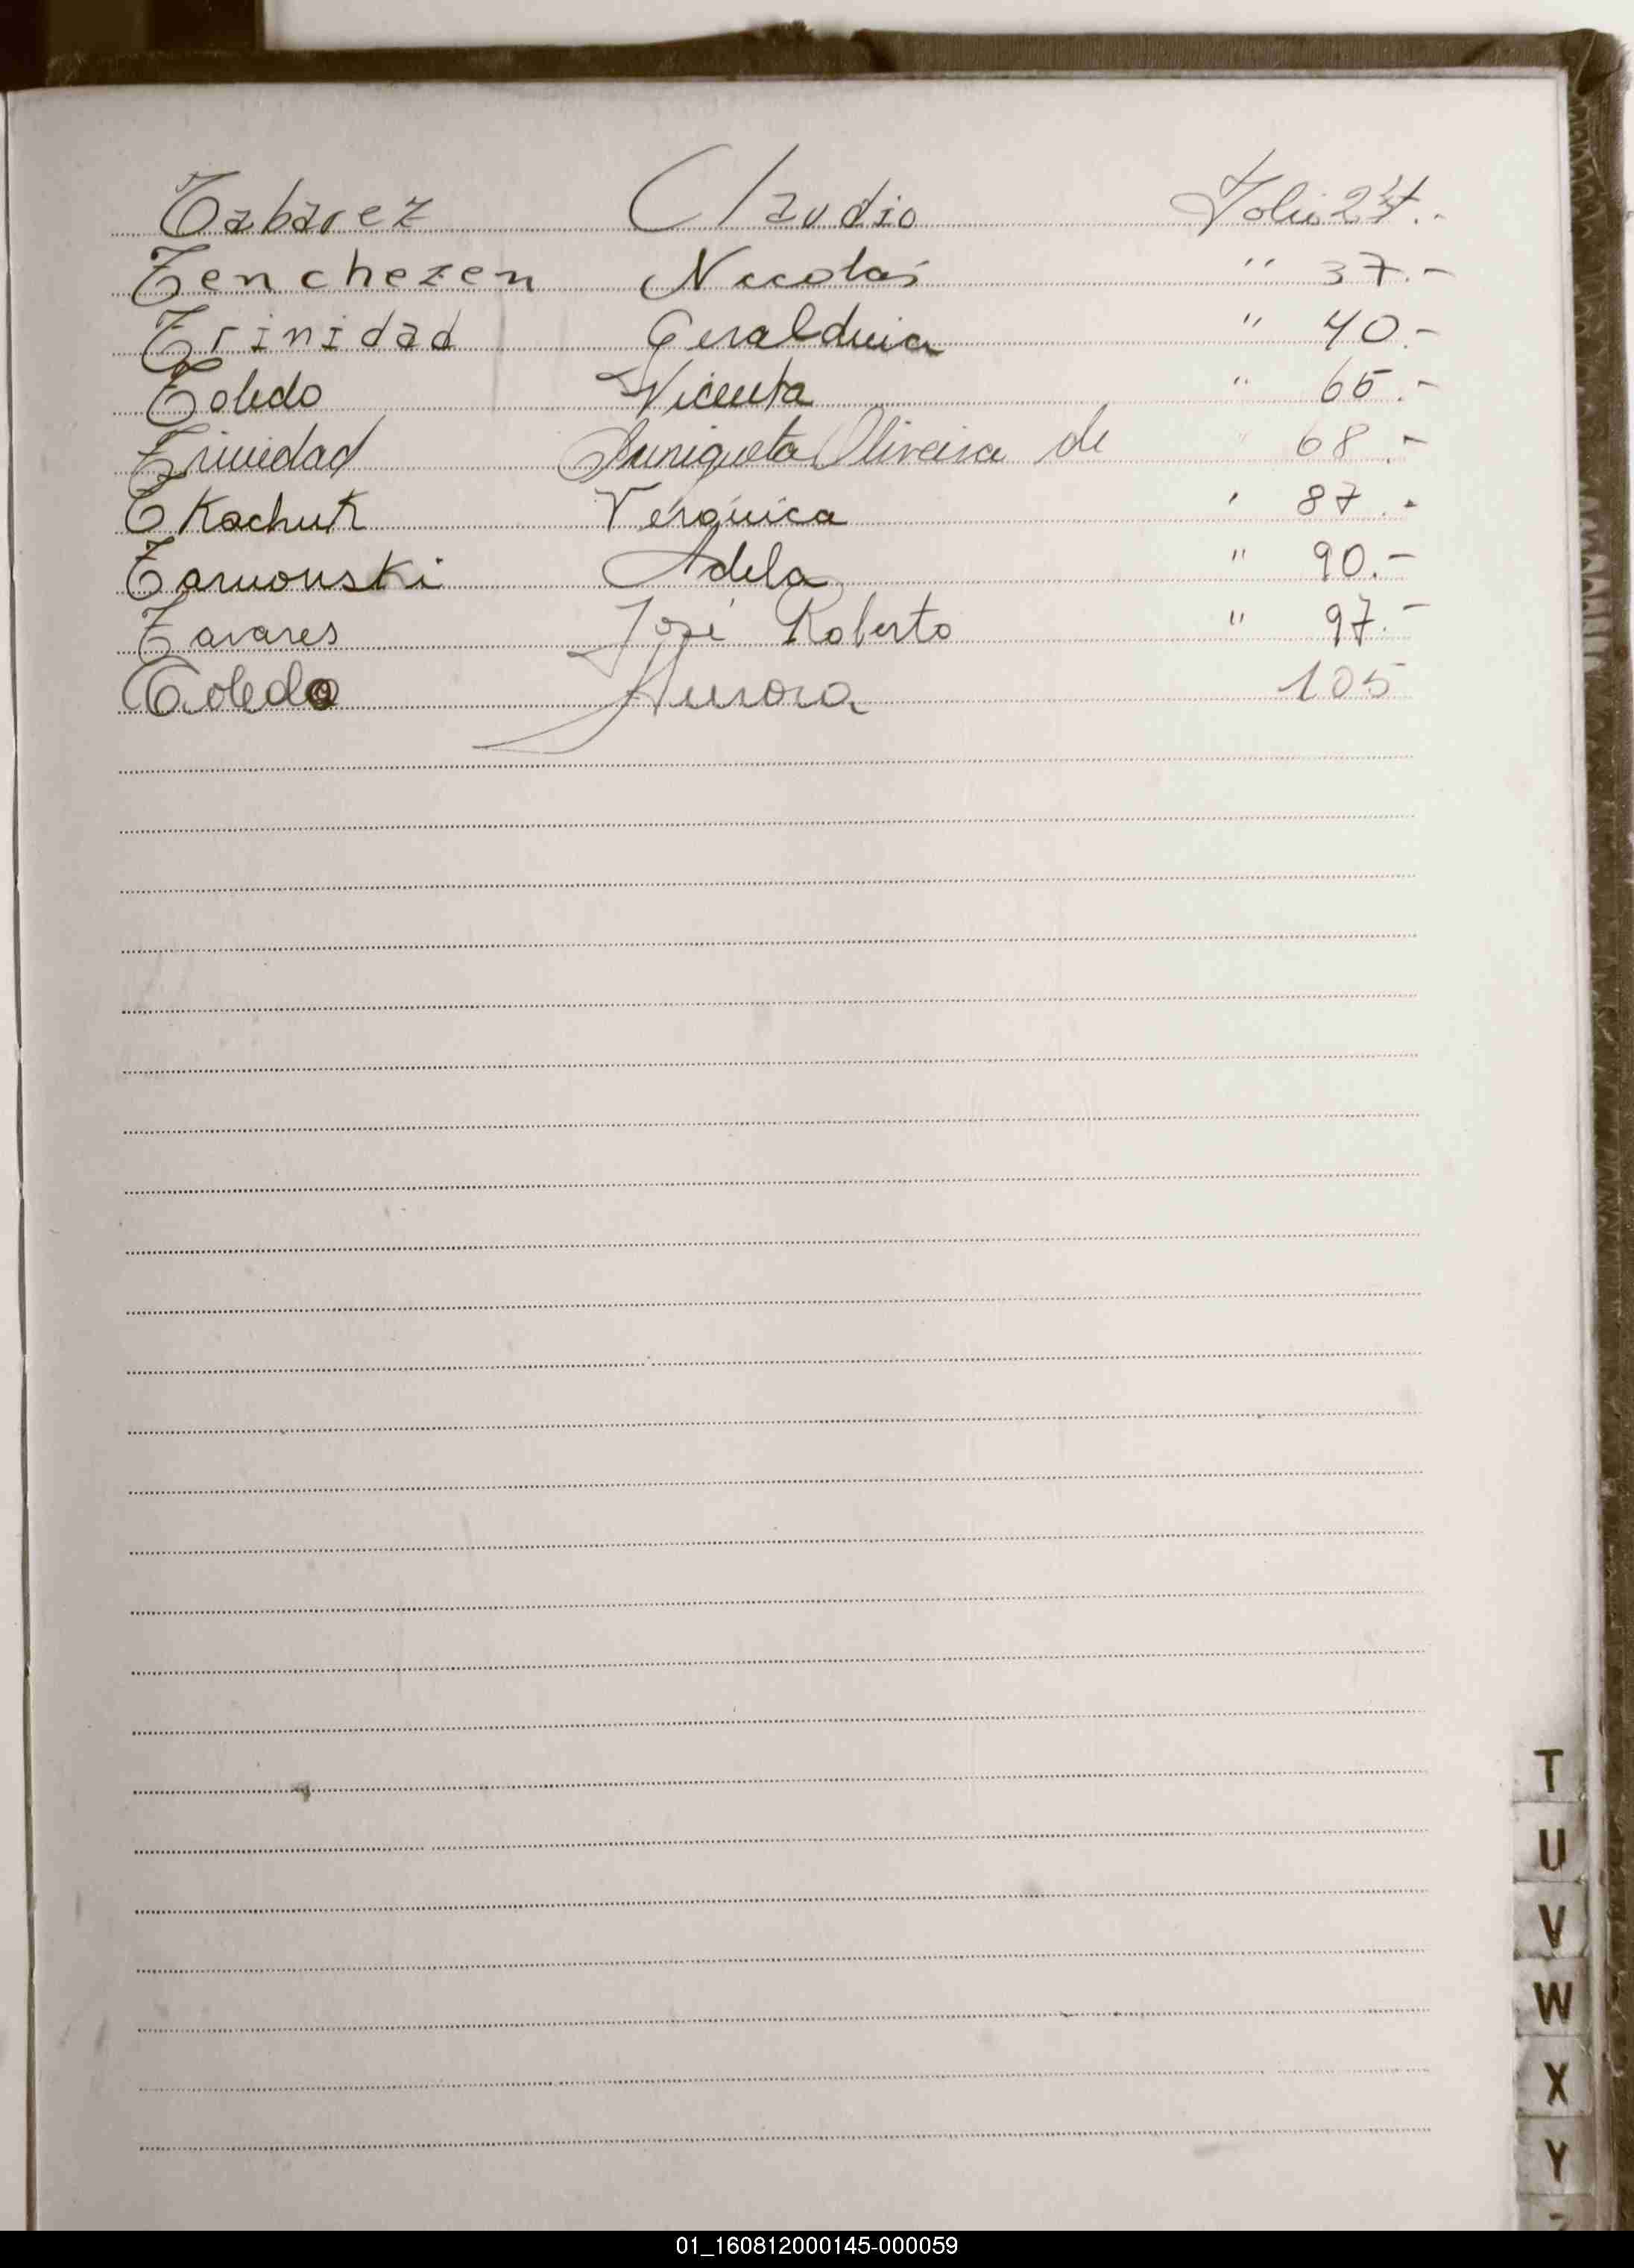 Tabarez Claudio Folio 27.-
Tenchezen Nicolas " 37.-
Trinidad Geraldina " 40.-
Toledo Vicenta " 65.-
Trinidad Oliveira de " 68.-
Tkachuk Verónica " 87.-
Tarnouski Adela " 90.-
Tavares José Roberto " 97.-
Toledo Aurora 105
T
U
V
W
X
Y
01_160812000145-000059